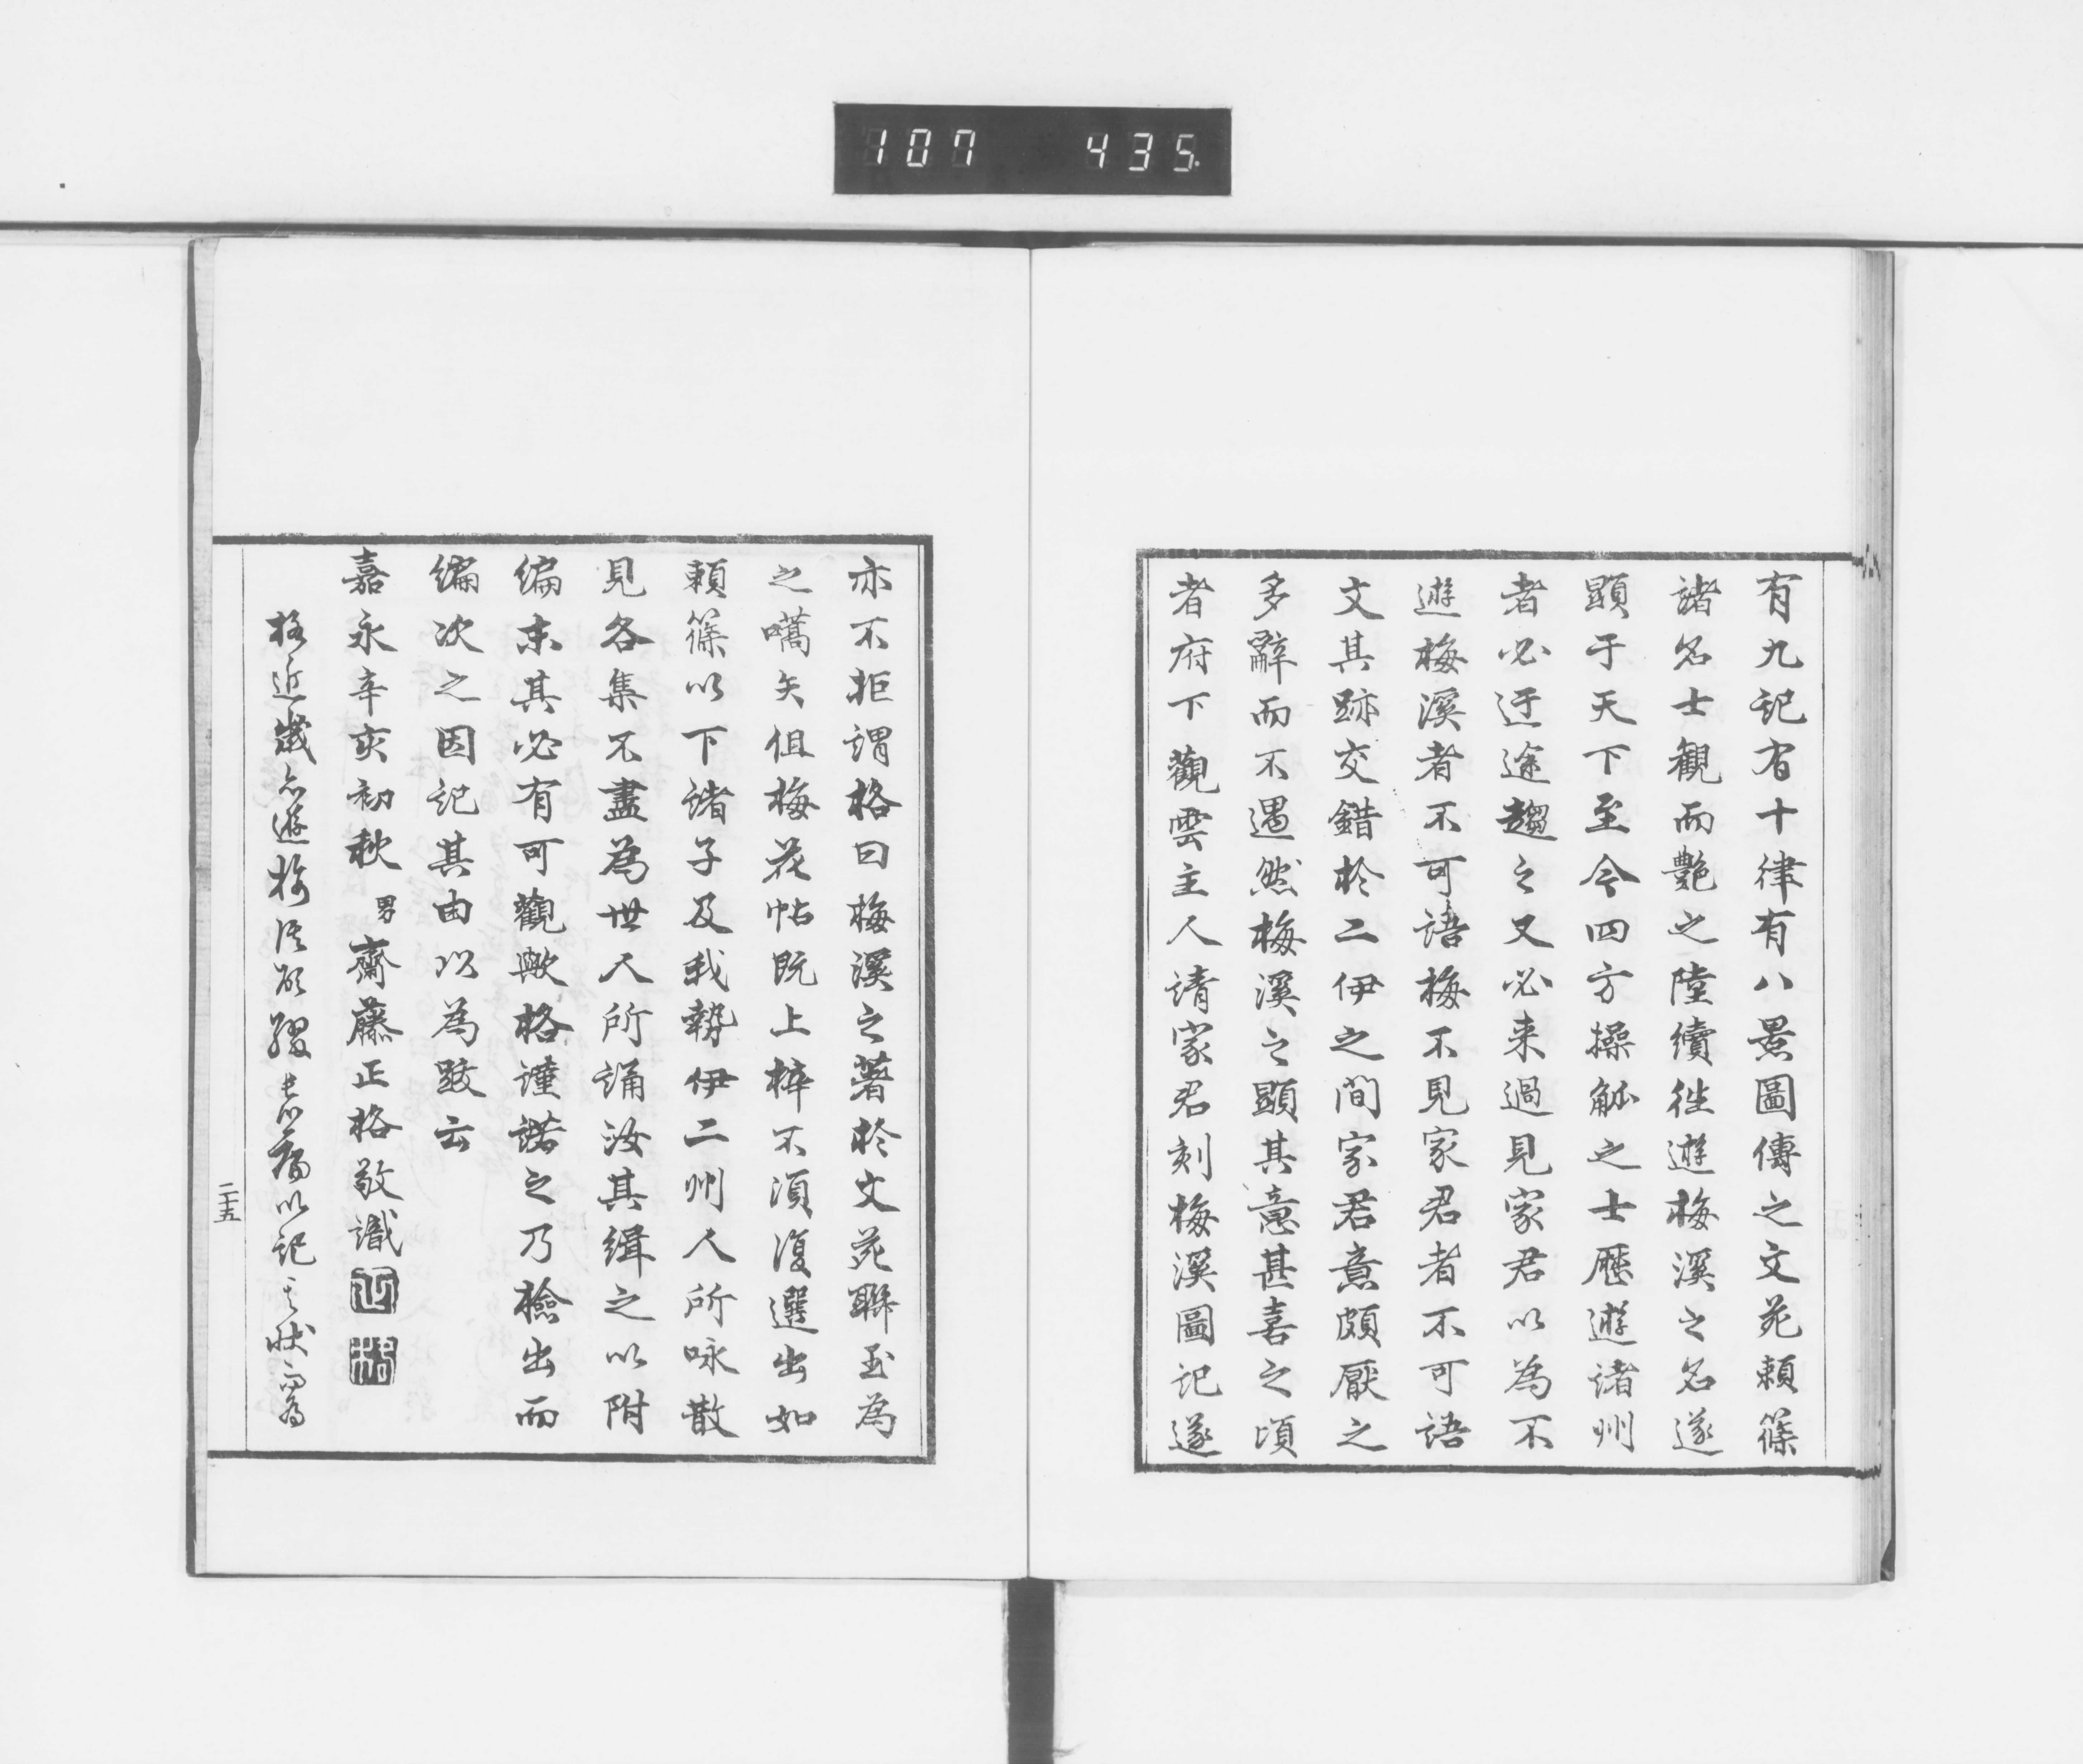 107 435.
有九記有十律有八景圖傳之文苑頼篠
諸名士観而艶之陸續徃遊梅溪之名遂
顕于天下至今四方操觚之士歴遊諸州
者必迂途趨之又必来過見家君以為不
遊梅溪者不可語梅不見家君者不可語
文其跡交錯於二伊之間家君意頗厭之
多辭而不遇然梅溪之顕其意甚喜之頃
者府下觀雲主人請家君刻梅溪圖記遂
亦不拒謂格曰梅溪之著於文苑聯玉為
之嚆矢但梅花帖既上梓不須復選出如
頼篠以下諸子及我勢伊二州人所咏散
見各集不盡為世人所誦汝其緝之以附
编末其必有可觀歟格謹諾之乃檢出而
编次之因記其由以為跋云
嘉永辛亥初秋 男齋藤正格敬識
格近歳亦遊梅溪
以記
二十五